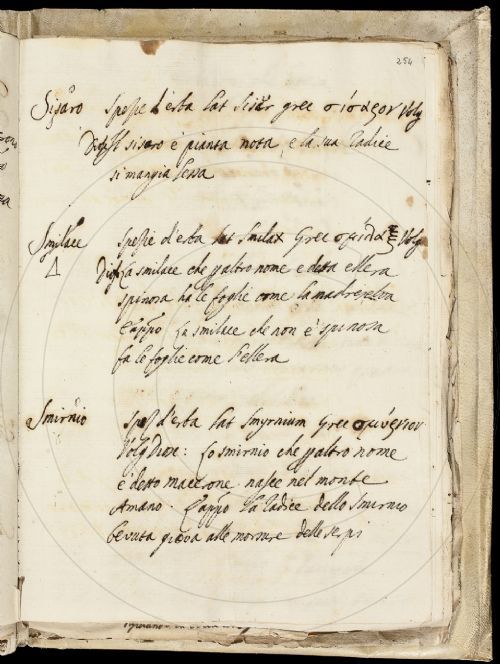 254
Sisaro Spezie d'erba Lat Siser grec σίσαρον Volg
Diosc Il sisaro è pianta nota, e la sua radice
si mangia lessa
Smilace Spezie d'erba Lat Smilax Grec σμίλαξ Volg
Diosc La smilace che p altro nome e detta ellera
spinosa ha le foglie come la madreselva
E appo La smilace che non è spinosa
fa le foglie come l'ellera
Smirnio Spez d'erba Lat Smyrnium Grec σμύρνιον
Volg Diosc: Lo smirnio che p altro nome
è detto macerone nasce nel monte
Amano. E appo La radice dello smirnio
bevuta giova alle morsure delle serpi